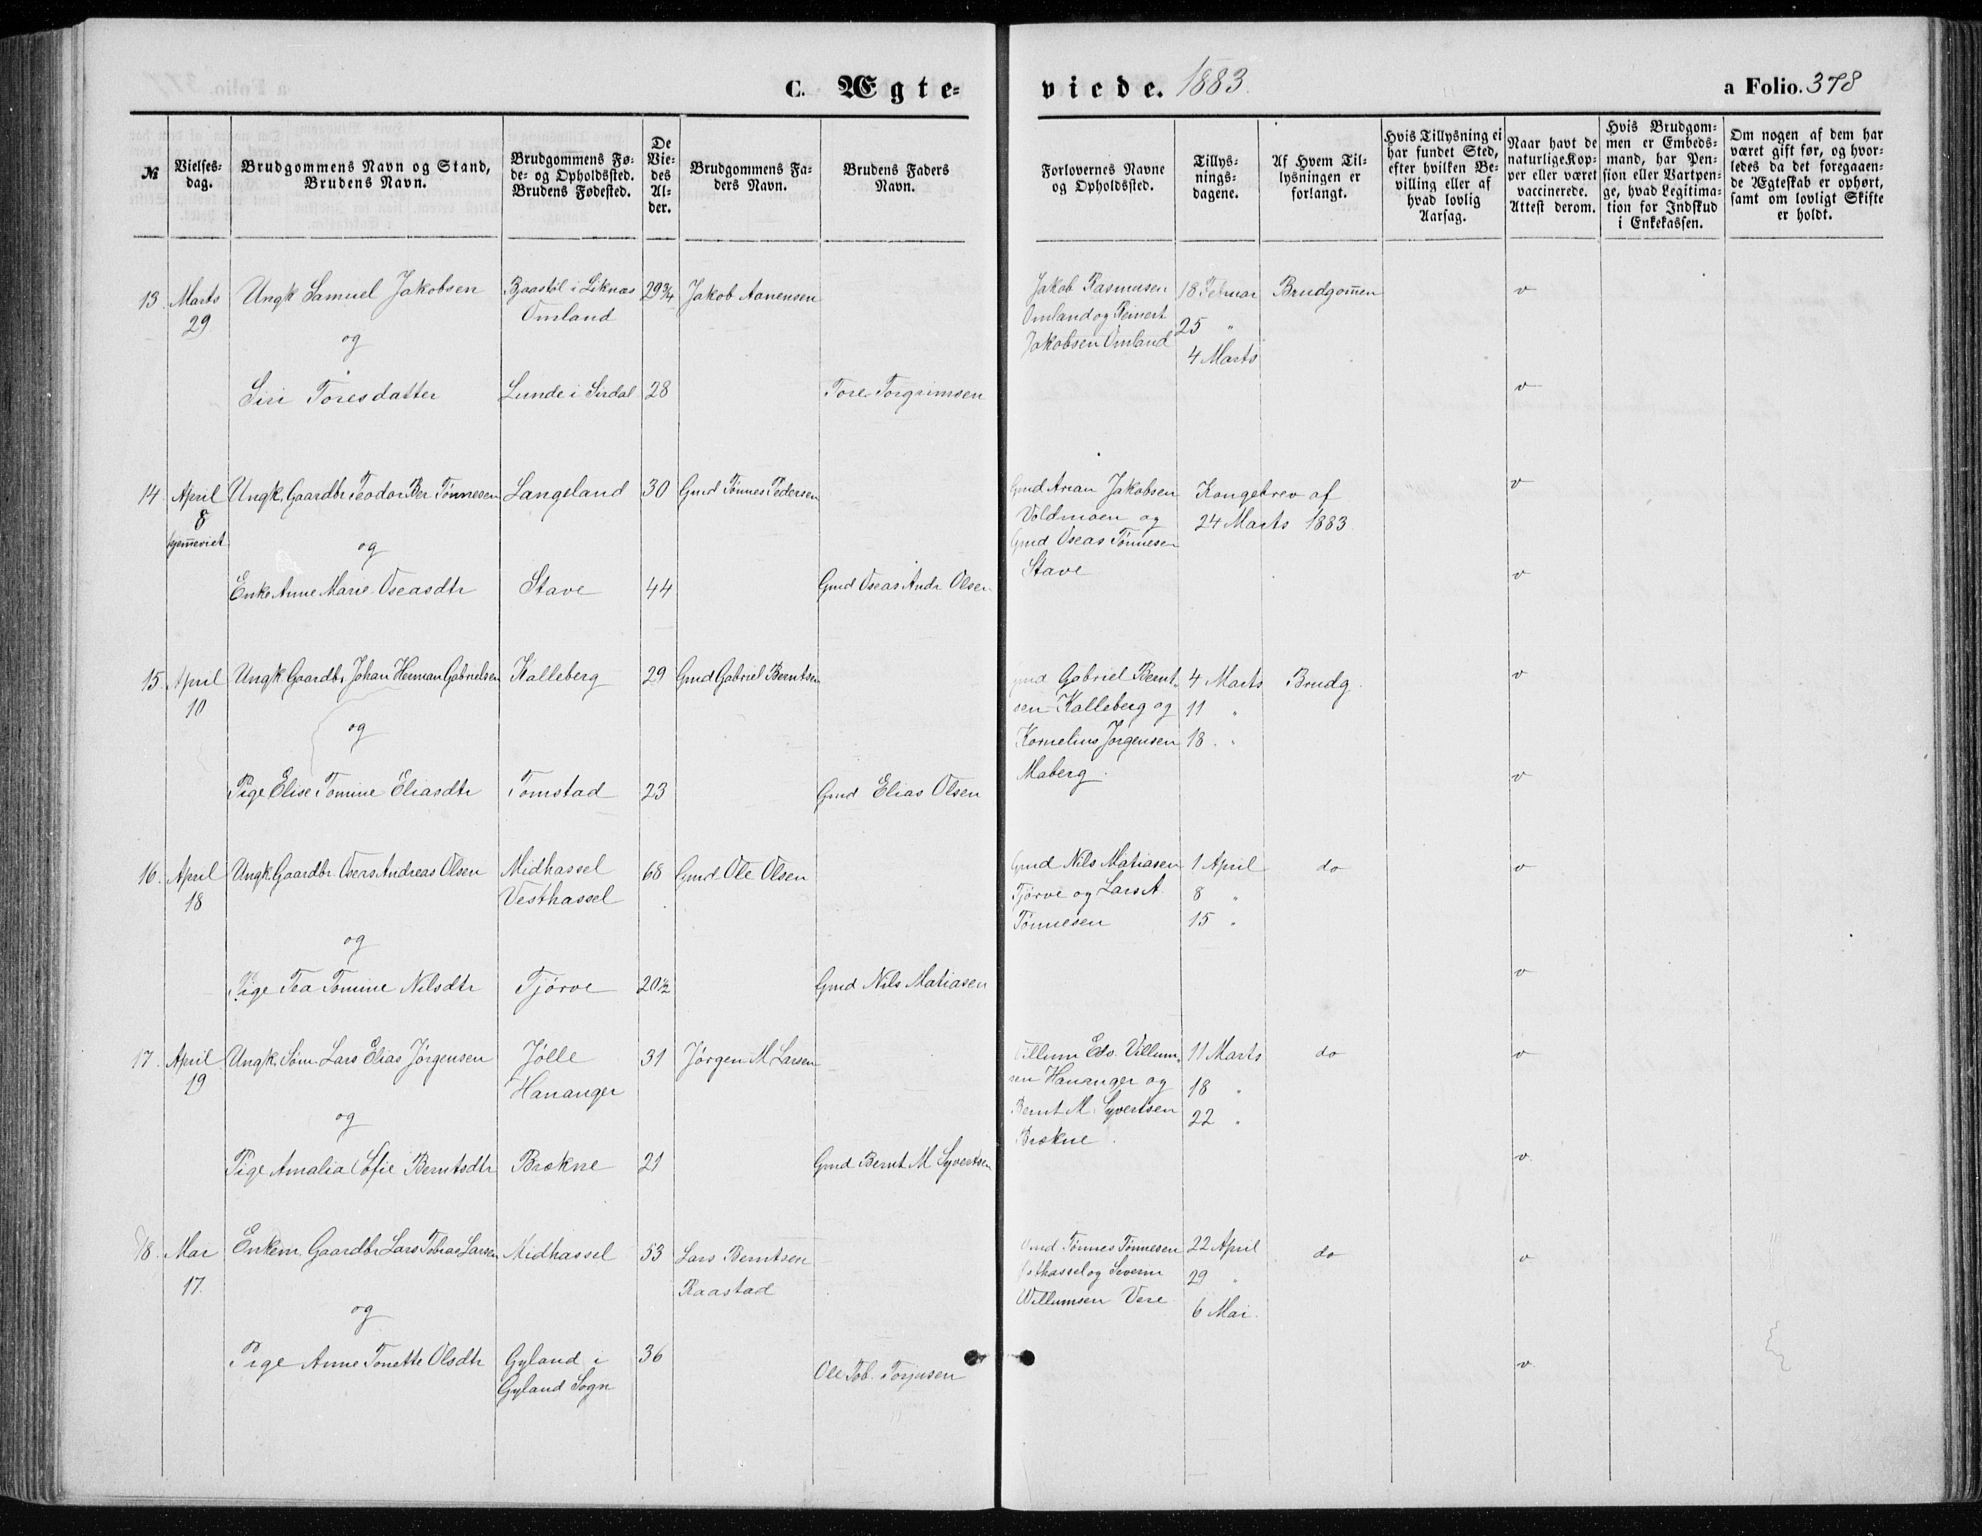 C. Ægte-
viede. 1883.
a Folio. 378
№
Vielses-
dag.
Brudgommens Navn og Stand,
Brudens Navn.
Brudgommens Fø-
de- og Opholdssted.
Brudens Fødested.
De
Vie-
des
Al-
der.
Brudgommens Fa-
ders Navn.
Brudens Faders
Navn.
Forlovernes Navne
og Opholdssted.
Tillys-
nings-
dagene.
Af Hvem Til-
lysningen er
forlangt.
Hvis Tillysning ei
har fundet Sted,
efter hvilken Be-
villing eller af
hvad lovlig
Aarsag.
Naar havt de
naturlige Kop-
per eller været
vaccinerede.
Attest derom.
Hvis Brudgom-
men er Embeds-
mand, har Pen-
sion eller Vartpen-
ge, hvad Legitima-
tion for Indskud
i Enkekassen.
Om nogen af dem har
været gift før, og hvor-
ledes da det foregaaen-
de Ægteskab er ophørt,
samt om lovligt Skifte
er holdt.
13 Marts Ungk Samuel Jakobsen i Liknæs 29 3/4 Jakob Aanensen Jakob Rasmusen 18 Februar Brudgom̄en v
29. Omland Omland og Reinert 25 "
og Jakobsen Omland 4 Marts
Siri Toresdatter Lunde i Sirdal 28 Tore Torgrimsen v
14. April Ungk. Gaardbr Teodor Ber Tønnesen Langeland 30 Gmd Tønnes Pedersen Gmd Arian Jakobsen Kongebrev af v
8 Voldmoen og 24 Marts 1883.
hjem̄eviet og Gmd Oseas Tønnesen
Stave
Enke Anne Marie Oseasdtr Stave 44 Gmd Oseas Andr Olsen v
15. April Ungk Gaardbr Johan Herman Gabrielsen Kalleberg 29 Gmd Gabriel Berntsen Gmd Gabriel Bernt- 4 Marts Brudg. v
10 sen Kalleberg og 11 "
og Kornelius Jørgensen 18. "
Maberg.
Pige Elise Tomine Eliasdtr Tomstad 23 Gmd Elias Olsen v
16. April Ungk. Gaardbr. Oseas Andreas Olsen Midhassel 68 Gmd Ole Olsen Gmd Nils Matiasen 1 April do v
18 Vesthassel Tjørve og Lars A. 8 "
og Tønnesen 15 "
Pige Tea Tomine Nilsdtr Tjørve 20 1/2 Gmd Nils Matiasen v
17. April Ungk. Søm. Lars Elias Jørgensen Jølle 31 Jørgen M Larsen Villum Edv. Villum- 11 Marts do v
19 Hananger sen Hananger og 18 "
og Bernt M. Syvertsen 22 "
Brekne.
Pige Amalia Sofie Berntsdtr Brekne 21 Gmd Bernt M Syvertsen v.
18. Mai Enkem. Gaardbr Lars Tobias Larsen Midhassel 53 Lars Berntsen Gmd Tønnes Tønnesen 22 April do v
17. Raastad Østhassel og Severin 29 "
og Willumsen Vere 6 Mai.
Pige Anne Tonette Olsdtr Gyland i 36 Ole Tob. Torjusen v.
Gyland Sogn